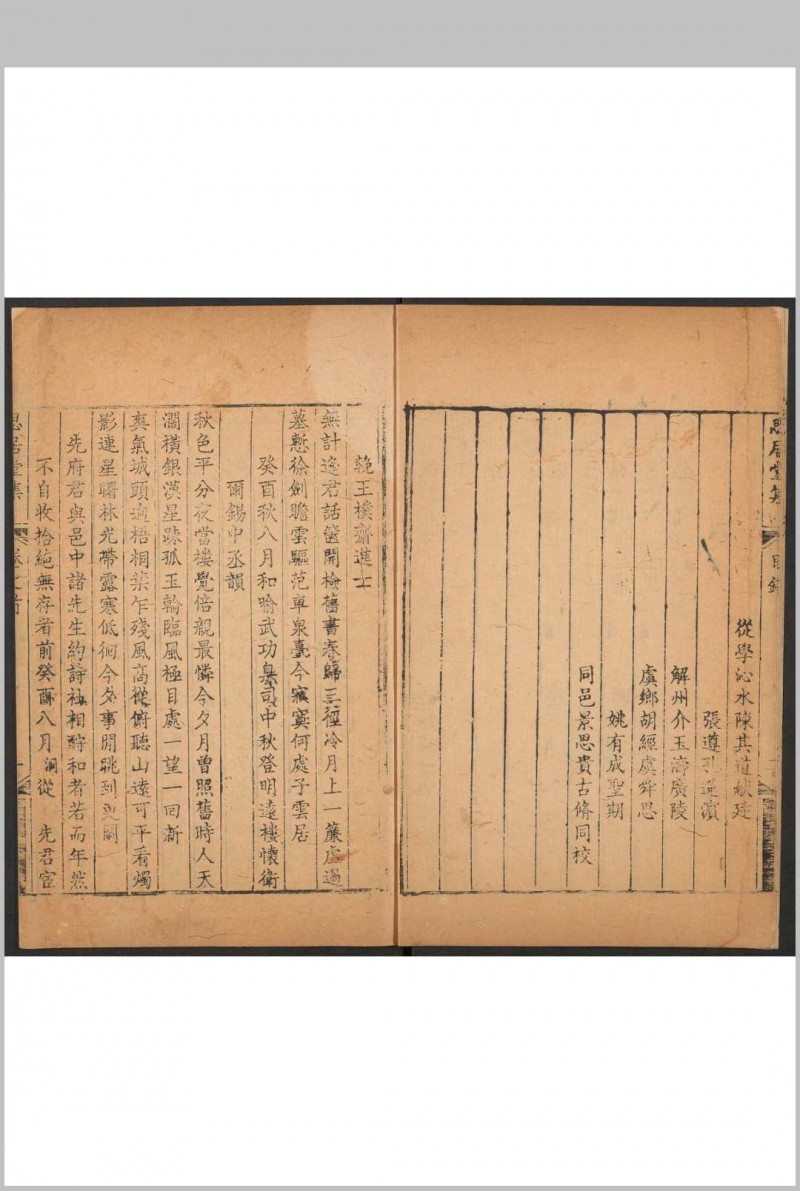 思居堂集 目錄
從學沁水陳其道猷廷
張遵孔蓮濱
解州介玉濤廣陵
虞鄉胡經虞舜思
姚有成聖期
同邑景思貴古脩同校
輓王樸齋進士
無計逢君話篋開檢舊書泰歸三徑冷月上一簾虛過
墓慙徐劍瞻雲驅范車泉臺今寂寞何處子雲居
癸酉秋八月和喻武功臬司中秋登明遠樓懷衛
爾錫中丞韻
秋色平分夜當樓覺倍親最憐今夕月曾照舊時人天
濶橫銀漢星踈孤玉輪臨風極目處一望一回新
爽氣城頭適梧桐柒乍殘風高從俯聽山遠可平看燭
影連星曙林光帶露寒低徊今夕事閒眺到更闌
先府君與邑中諸先生約詩社相酧和者若而年然
不自收拾絶無存者前癸酉八月澗從 先君宦
思居堂集 卷之首